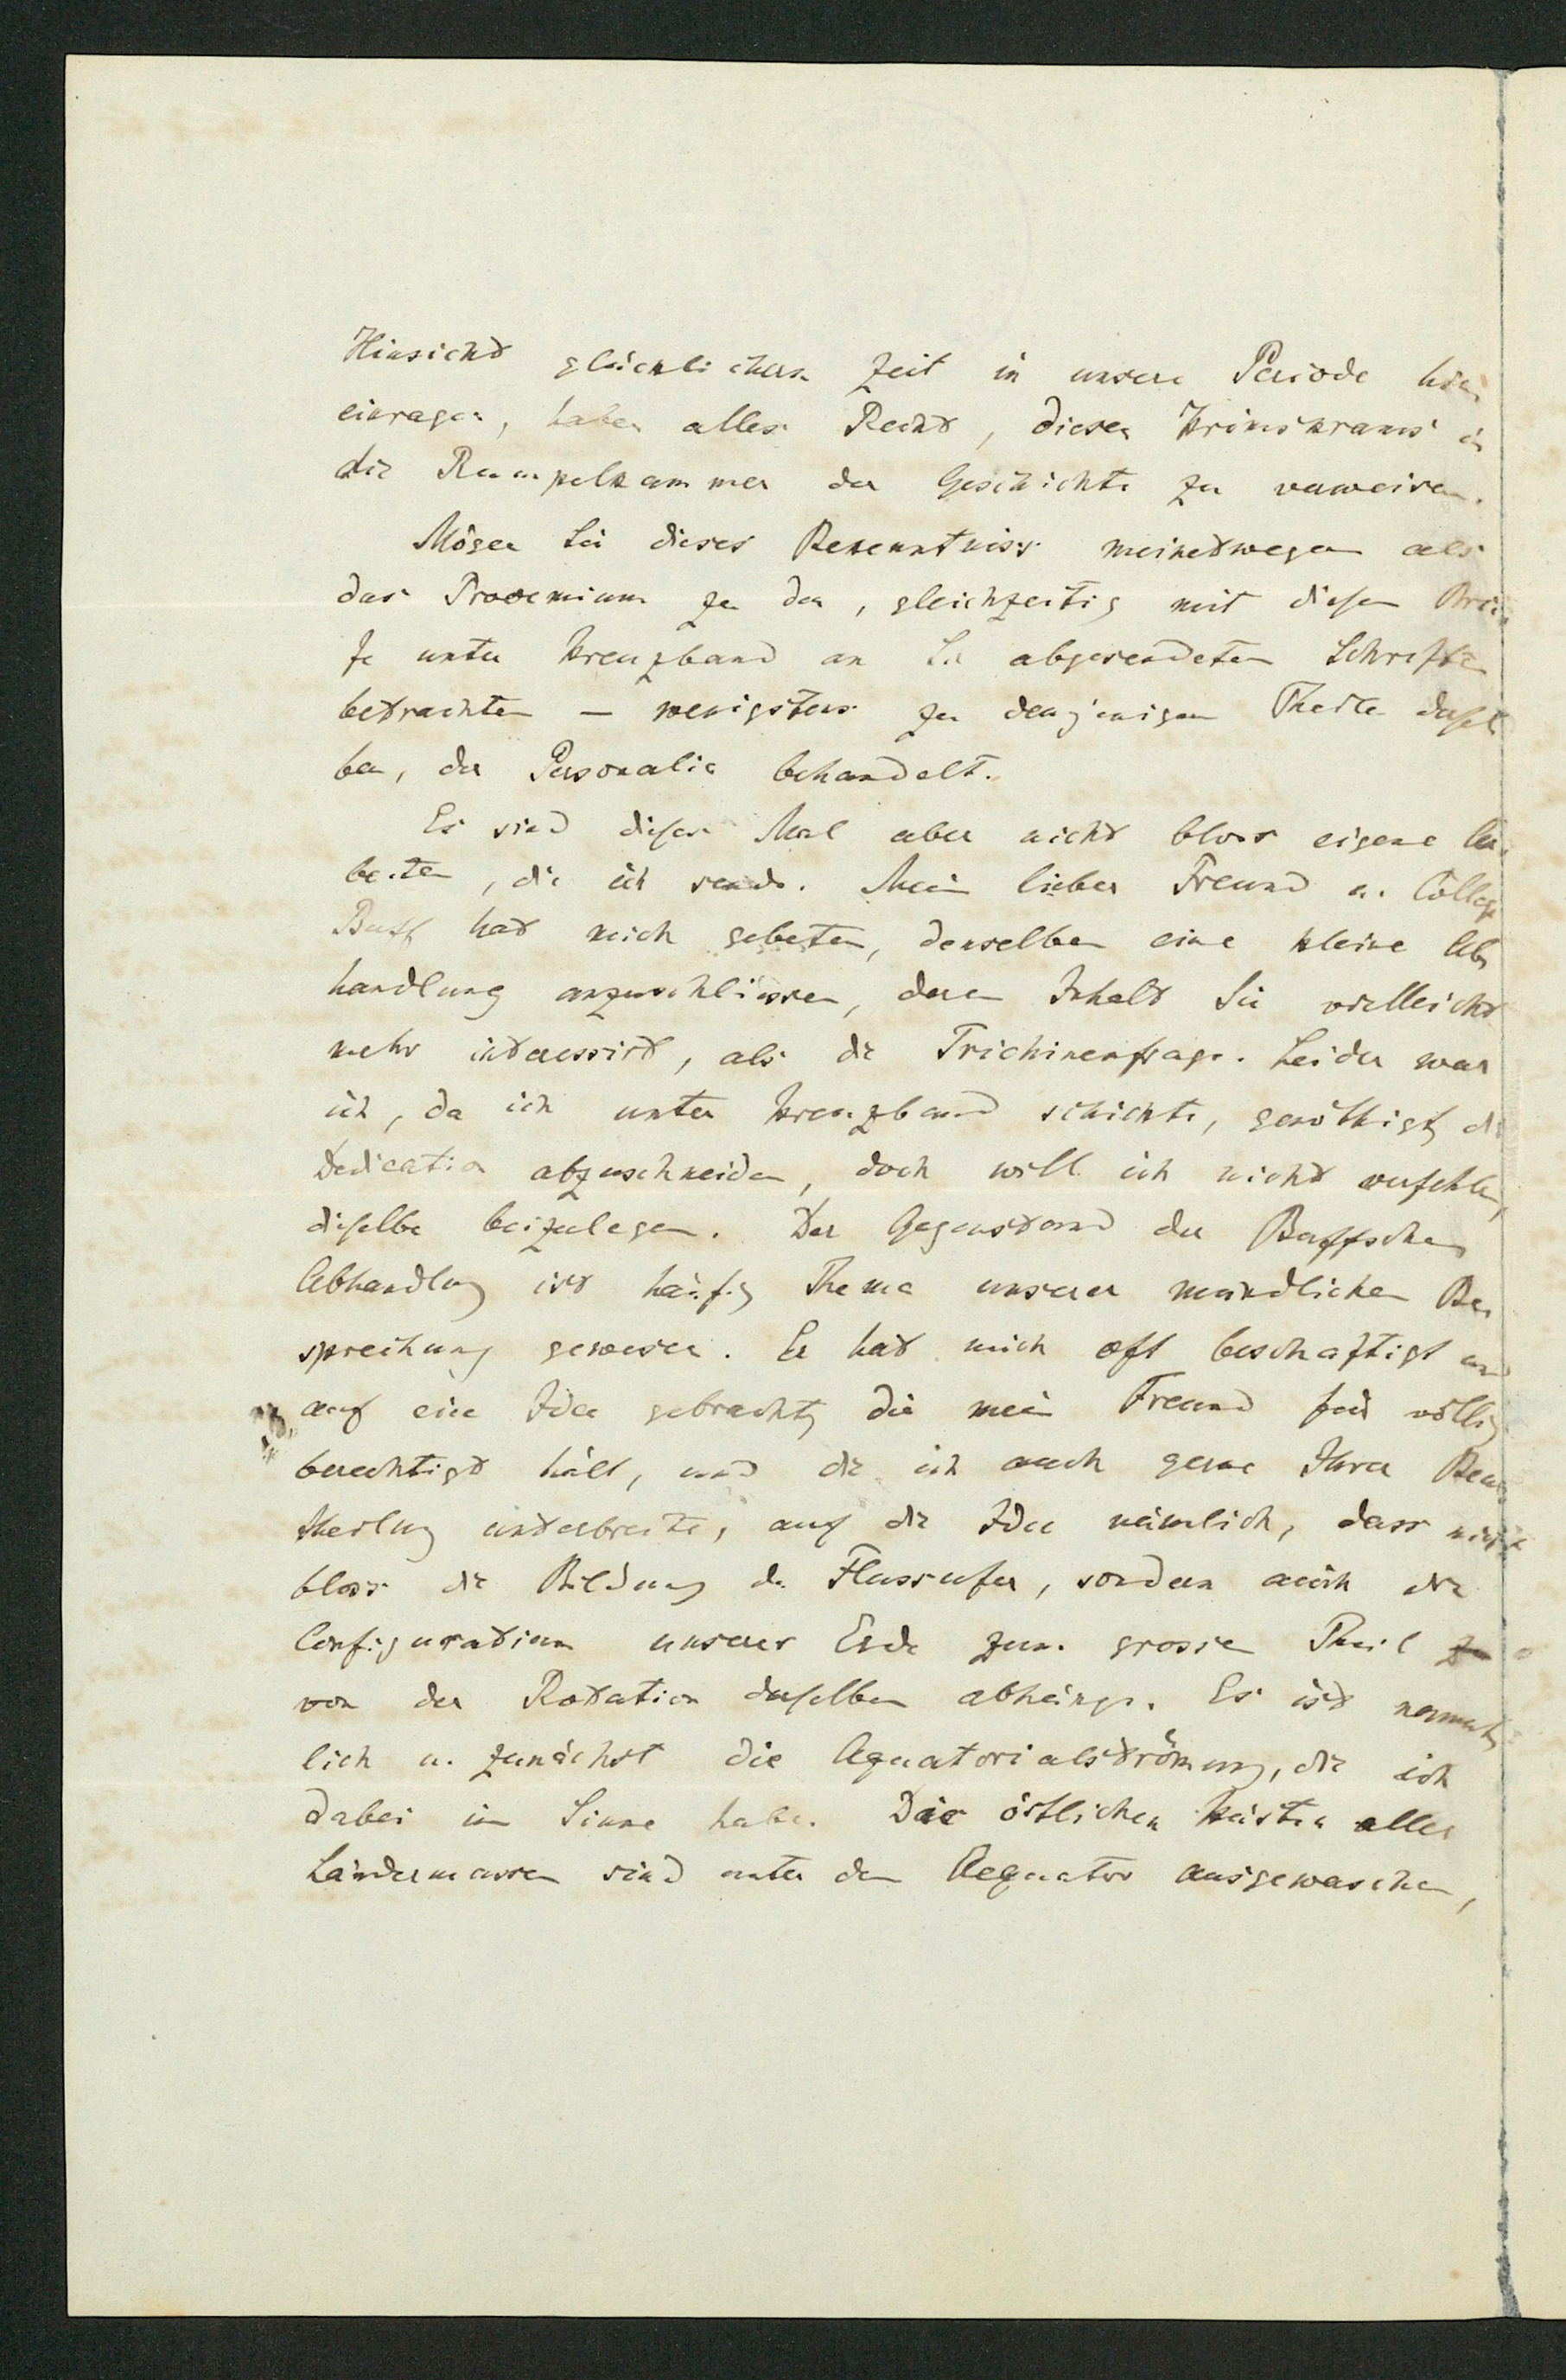 Hinsicht glücklichern Zeit in unsere Periode hin
einragen, haben alles Recht, diesen Krimskrams in
die Rumpelkammer der Geschichte zu verweisen.
Mögen Sie dieses Bekenntniss meinetwegen als
das Prooemium zu den, gleichzeitig mit diesem Brie
fe unter Kreuzband an Sie abgesendeten Schriften
betrachten — wenigstens zu demjenigen Theile dersel
ben, der Personalia behandelt.
Es sind dieses Mal aber nicht bloss eigene Ar
beiten, die ich sende. Mein lieber Freund u. College
Buff hat mich gebeten, denselben eine kleine Ab
handlung anzuschliessen, deren Inhalt Sie vielleicht
mehr interessirt, als die Trichinenfrage. Leider war
ich, da ich unter Kreuzband schickte, genöthigt, die
Dedication abzuschneiden, doch will ich nicht verfehlen,
dieselbe beizulegen. Der Gegenstand der Buffschen
Abhandlung ist häufig Thema unserer mündlichen Be
sprechung gewesen. Er hat mich oft beschäftigt und
auf eine Idee gebracht, die mein Freund für völlig
berechtigt hält, und die ich auch gerne Ihrer Beur
theilung unterbreite, auf die Idee nämlich, dass nicht
bloss die Bildung der Flussufer, sondern auch die
Configuration unserer Erde zum grossen Theil zu
von der Rotation derselben abhänge. Es ist nament
lich u. zunächst die Aequatorialströmung, die ich
dabei im Sinne habe. Die östlichen Küsten aller
Ländermassen sind unter dem Aequator ausgewaschen,